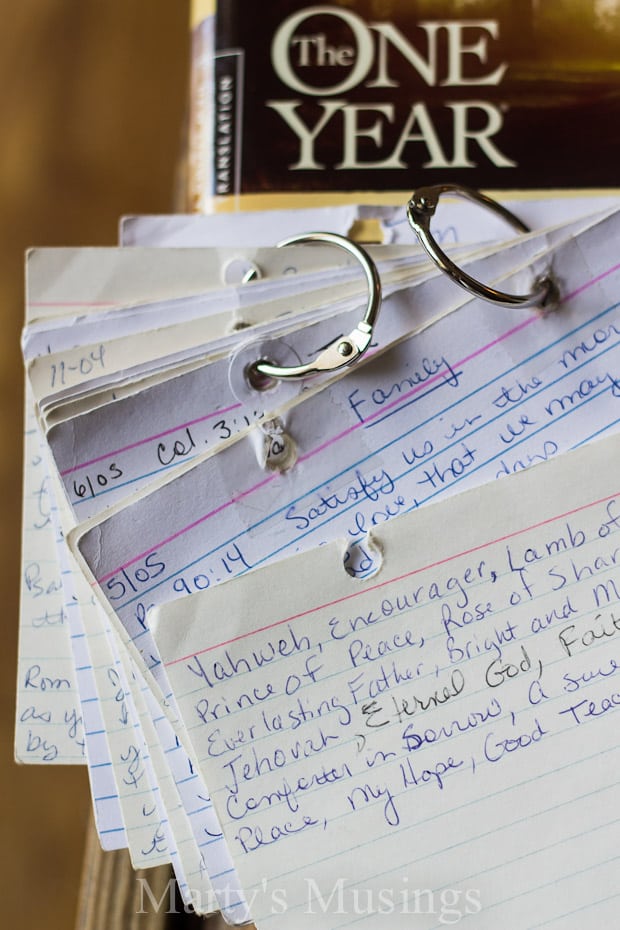 The
ONE
YEAR
TRANSLATION
11-04
6/05 Col. 3:12
Family
5/05
Satisfy us in the mor
love, that we may
90:14
days
Rom
as y
by t
Yahweh, Encourager, Lamb of
Prince of Peace, Rose of Shar
Everlasting Father, Bright and M
Jehovah, Eternal God, Fait
Comforter in Sorrow, a
Place, My Hope, Good Teac
Marty's Musings